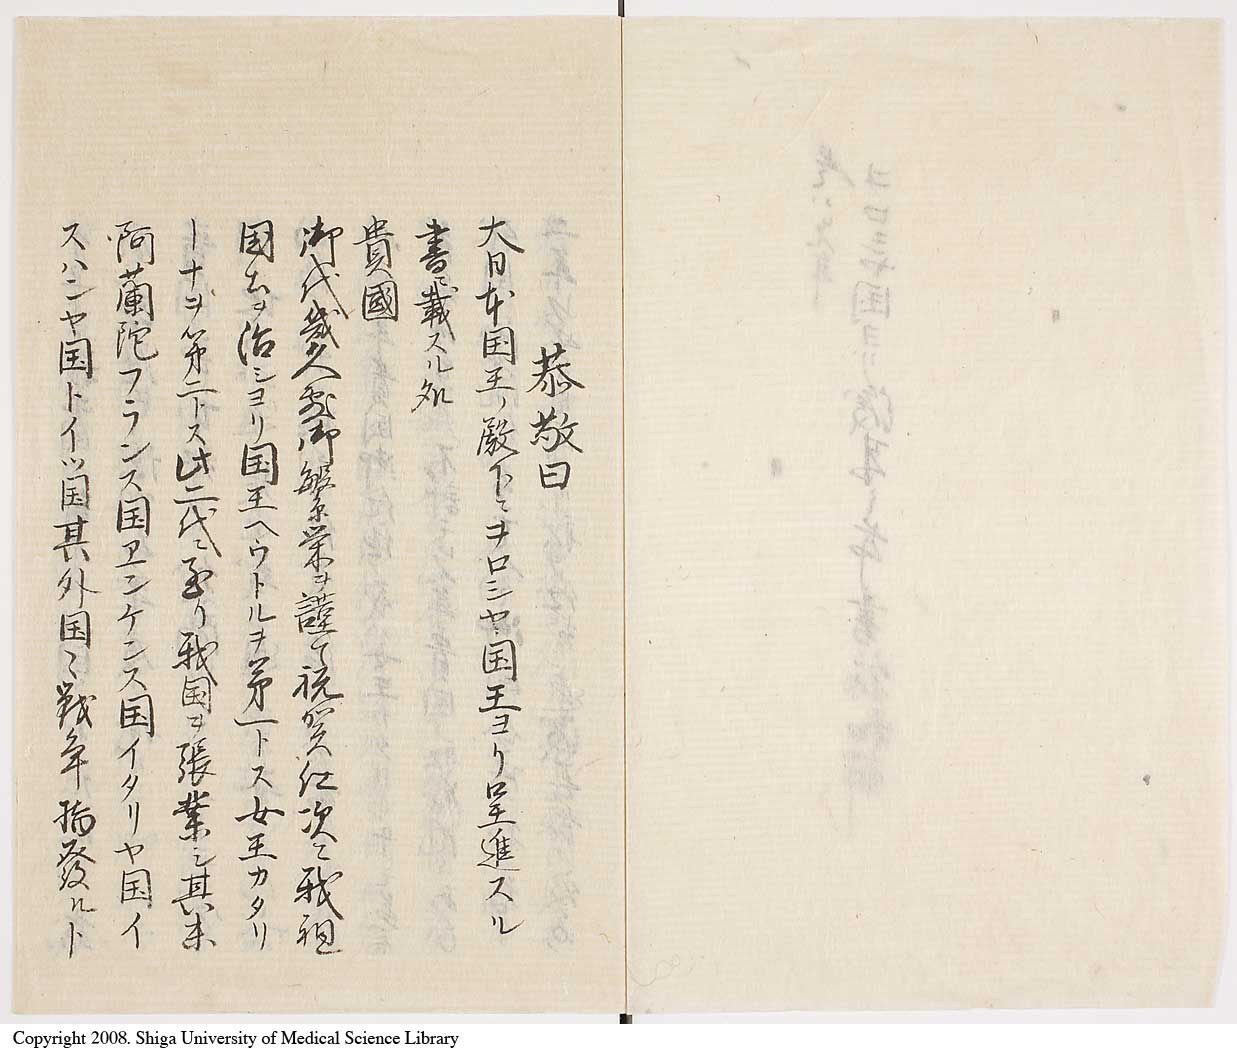 恭敬曰
大日本国王ノ殿下ニヲロシヤ国王ヨリ呈進スル
書ニ載スル処
貴國
御代幾久敷御繁栄ヲ謹テ祝賀仕次ニ我祖
国ヲ治シヨリ国王ヘウトルヲ第一トス女王カタリ
ーナヲ第二トス此二代ニ至リ我国ヲ張業シ其末
阿蘭陀フランス国ヱンケンス国イタリヤ国イ
スハンヤ国トイツ国其外国ニ戦争発ルト
Copyright 2008. Shiga University of Medical Science Library